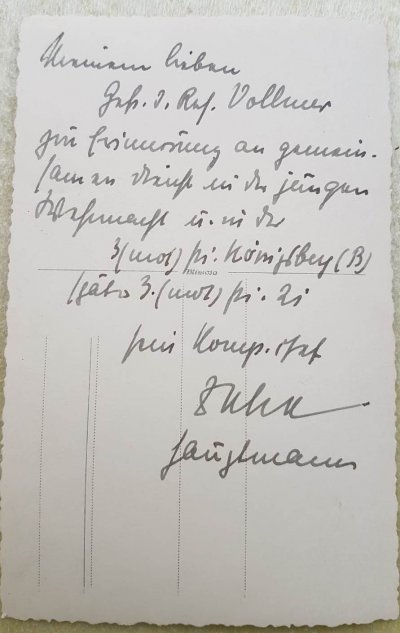 Meinem lieben
Gefr. d. Res. Vollmer
zur Erinnerung an gemein-
samen Dienst in der jungen
Wehrmacht u. in der
3(mot) Pi. Königsberg (B)
MIMOSA
später 3.(mot) Pi. 21
sein Komp.chef
Hauptmann